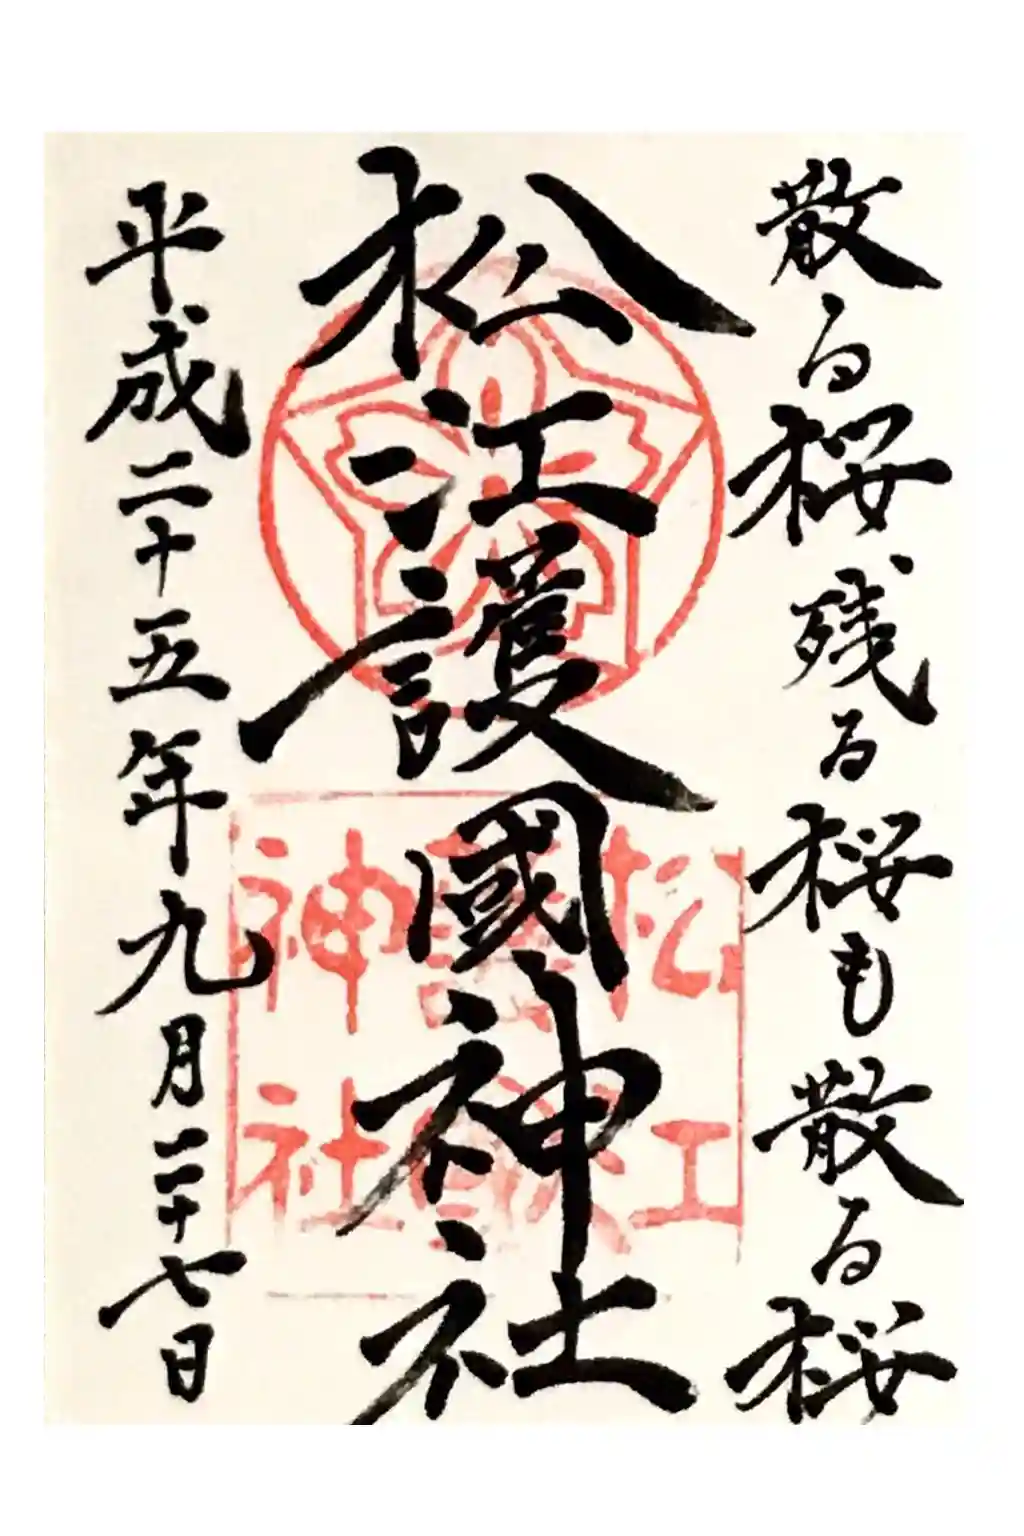 散る桜、残る桜も散る桜
松江護國神社
平成二十五年九月二十七日
松江
護國
神社